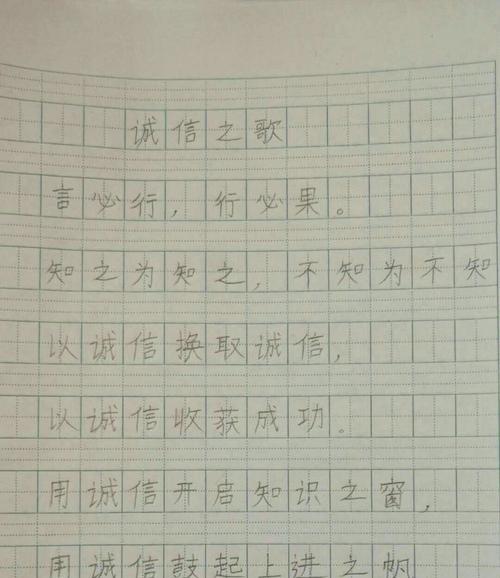 诚信之歌
言必行，行必果。
知之为知之，不知为不知
以诚信换取诚信，
以诚信收获成功。
用诚信开启知识之窗，
用诚信鼓起上进之帆